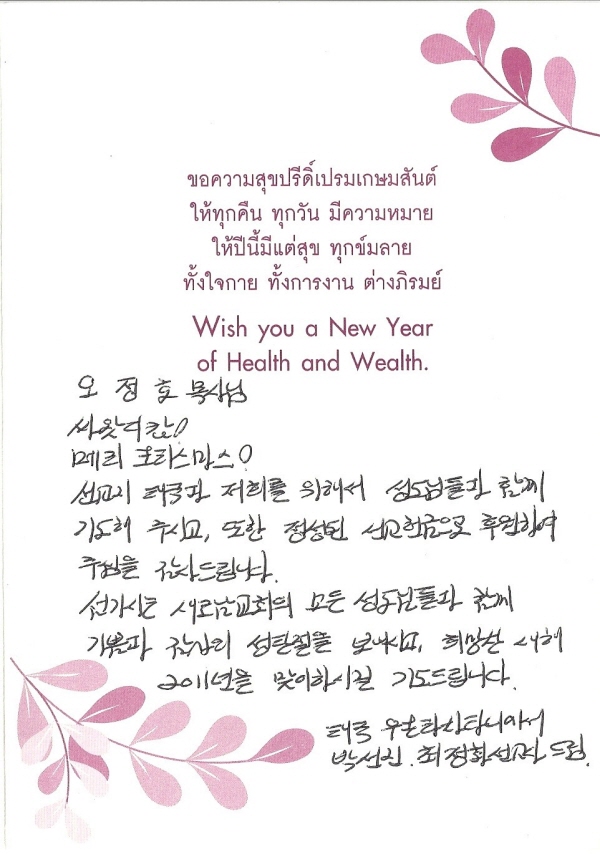 ขอความสุขปรีดิ์เปรมเกษมสันต์
ให้ทุกคืน ทุกวัน มีความหมาย
ให้ปีนี้มีแต่สุข ทุกข์มลาย
ทั้งใจกาย ทั้งการงาน ต่างภิรมย์
Wish you a New Year
of Health and Wealth.
오 정 호 목사님
싸왓디캅!
메리 크리스마스!
선교지 태국과 저희를 위해서 성도님들과 함께
기도해 주시고, 또한 정성된 선교헌금으로 후원하여
주심을 감사드립니다.
섬기시는 새로남교회의 모든 성도님들과 함께
기쁨과 감사의 성탄절을 보내시고, 희망찬 새해
2011년을 맞이하시길 기도드립니다.
태국 우본라차타니에서
박선진. 최정화선교사 드림.